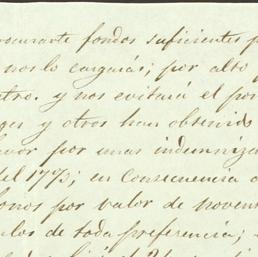 procurarte fondos suficientes p
nos lo cargarás; por alto
tro. y nos evitará el por
ges y otros han obtenido
avor por unas indemniza
del 1793; en consecuencia
onos por valor de noven
los de toda preferencia;